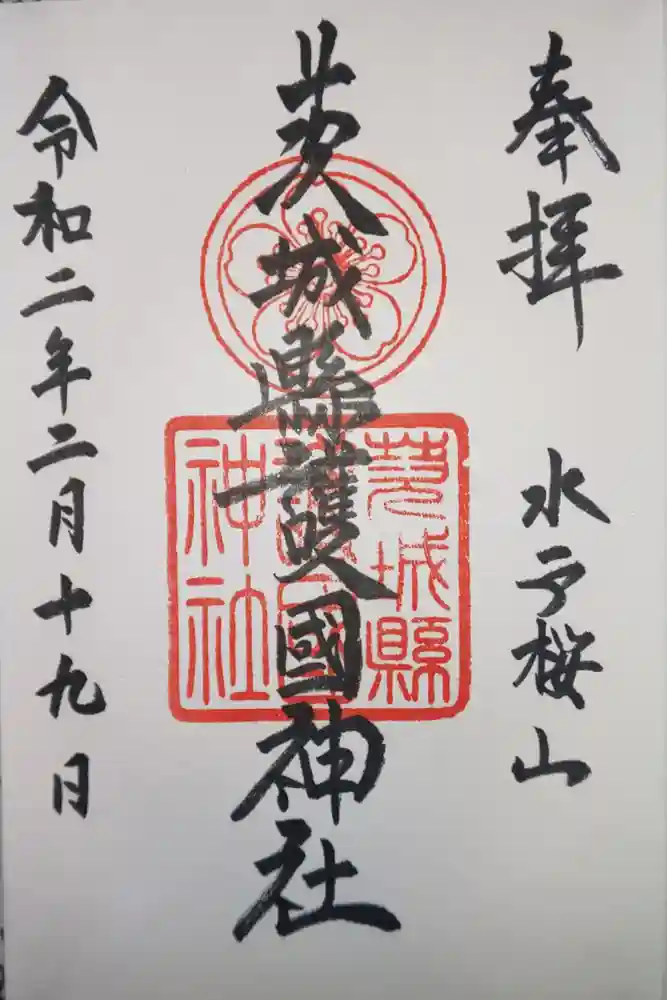 奉拝 水戸桜山
茨城縣護國神社
茨城縣
護國
神社
令和二年二月十九日